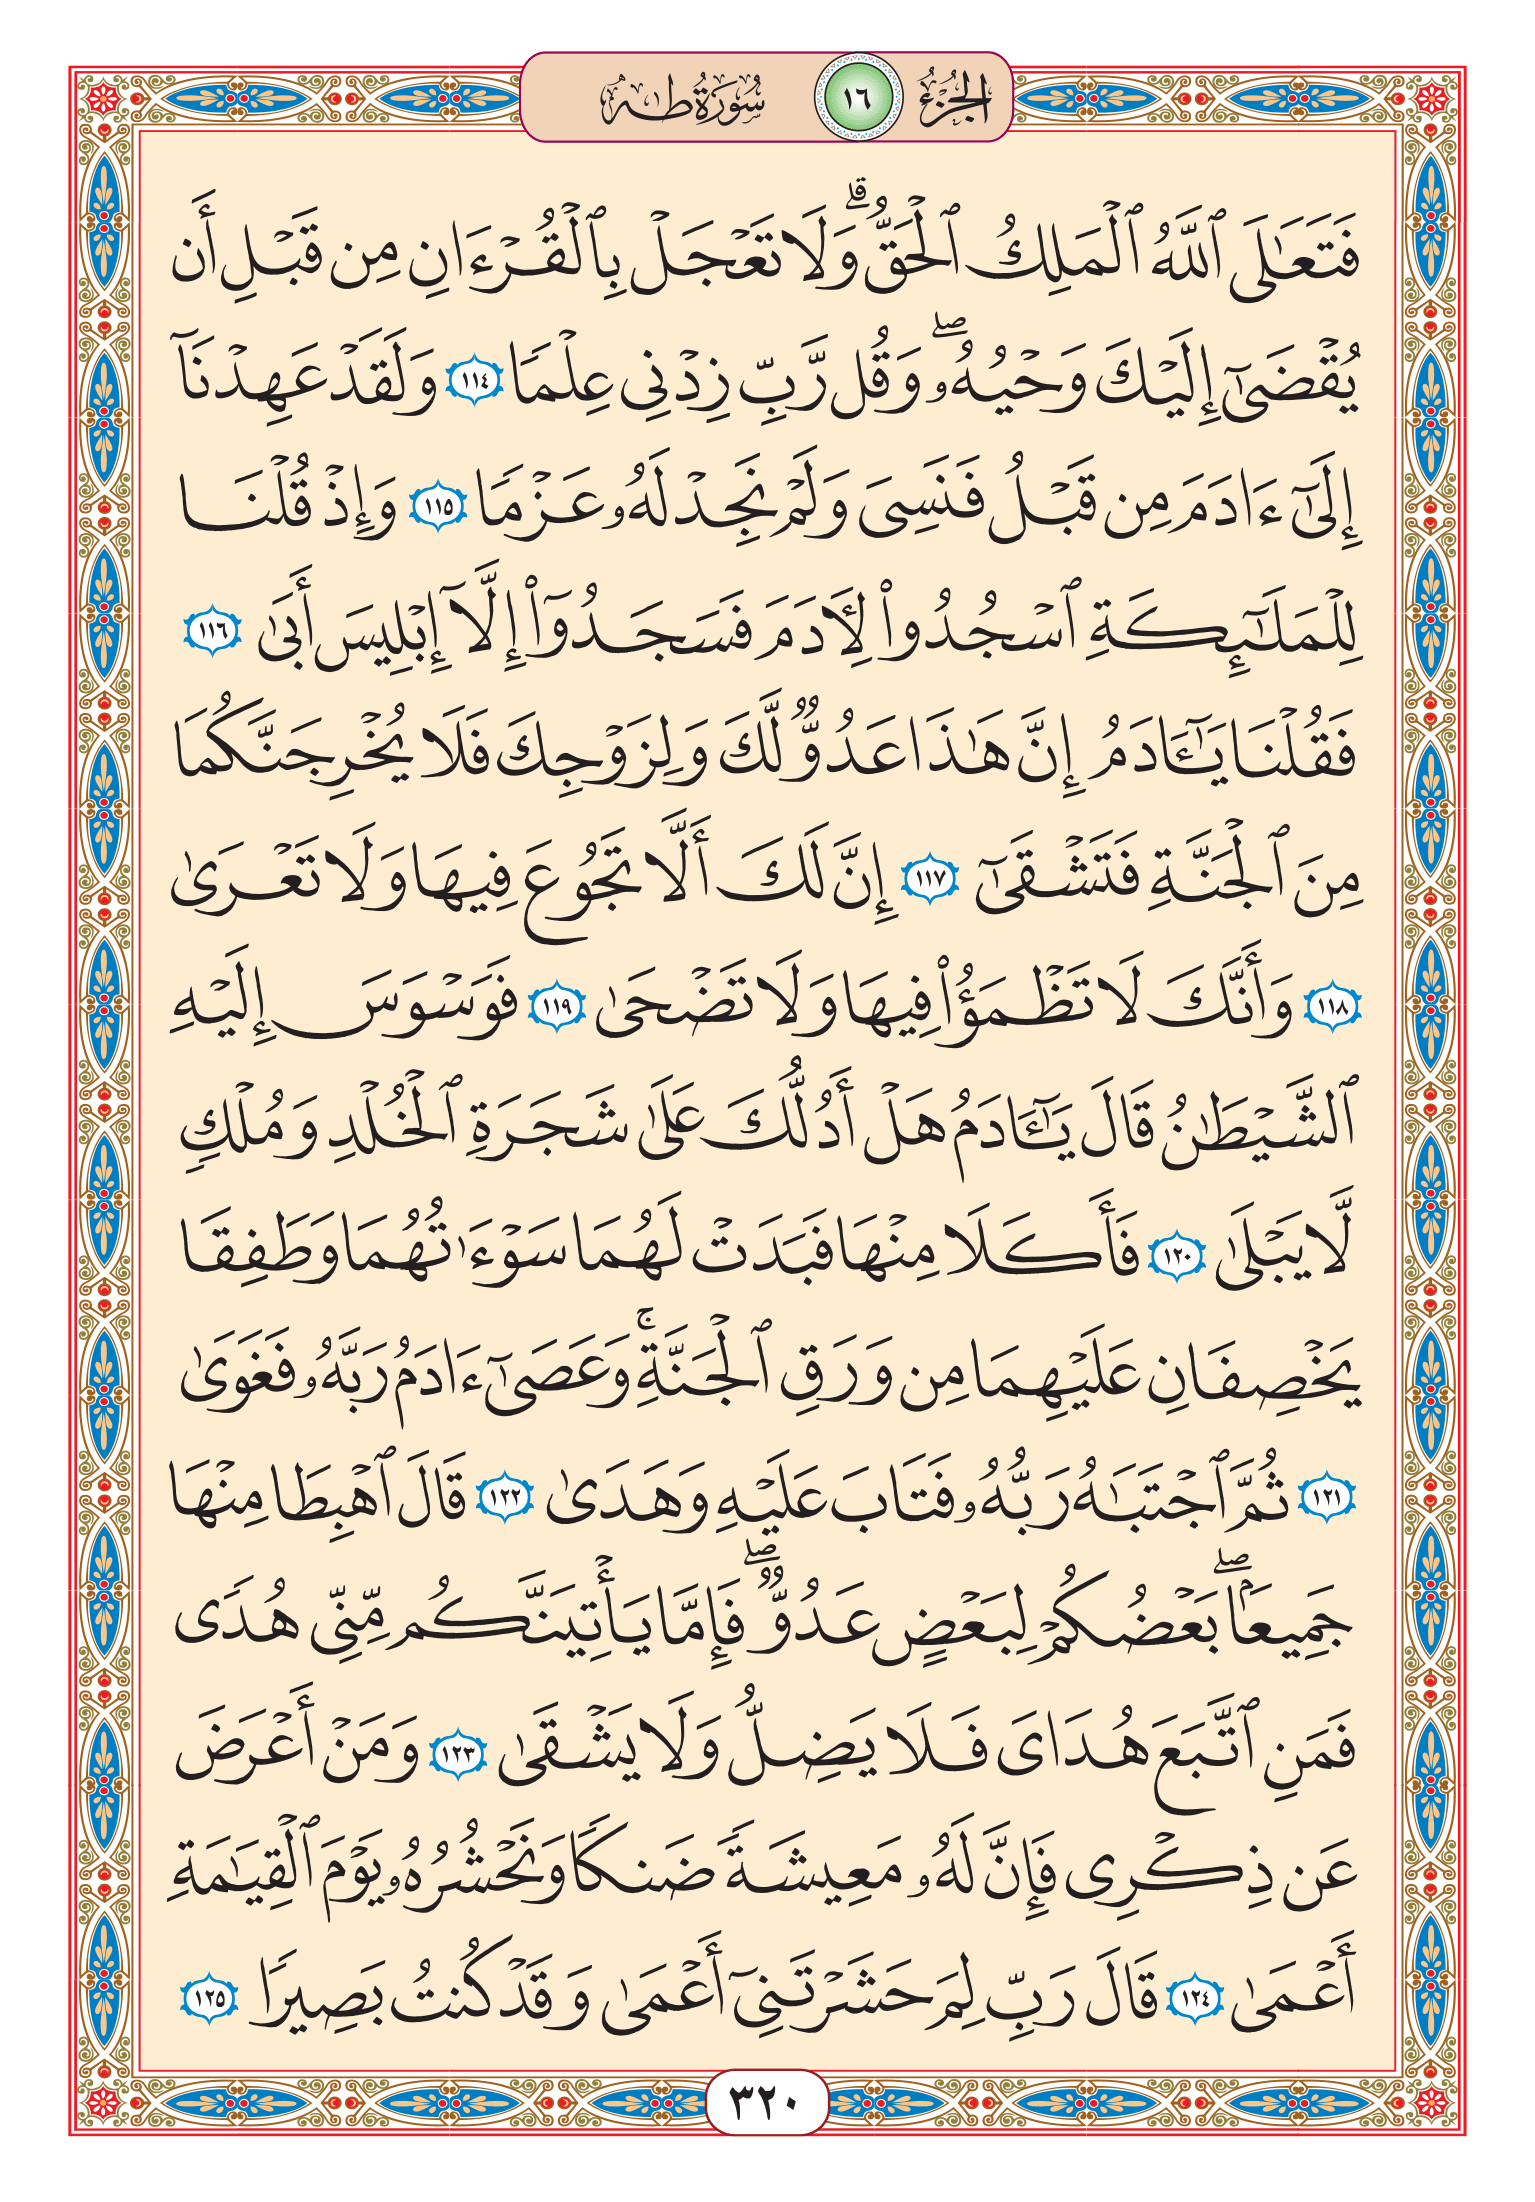 الجزء ١٦ سورة طه
فَتَعَٰلَى ٱللَّهُ ٱلْمَلِكُ ٱلْحَقُّ ۗ وَلَا تَعْجَلْ بِٱلْقُرْءَانِ مِن قَبْلِ أَن
يُقْضَىٰٓ إِلَيْكَ وَحْيُهُۥ ۖ وَقُل رَّبِّ زِدْنِى عِلْمًا ١١٤ وَلَقَدْ عَهِدْنَآ
إِلَىٰٓ ءَادَمَ مِن قَبْلُ فَنَسِىَ وَلَمْ نَجِدْ لَهُۥ عَزْمًا ١١٥ وَإِذْ قُلْنَا
لِلْمَلَٰٓئِكَةِ ٱسْجُدُوا۟ لِءَادَمَ فَسَجَدُوٓا۟ إِلَّآ إِبْلِيسَ أَبَىٰ ١١٦
فَقُلْنَا يَٰٓـَٔادَمُ إِنَّ هَٰذَا عَدُوٌّ لَّكَ وَلِزَوْجِكَ فَلَا يُخْرِجَنَّكُمَا
مِنَ ٱلْجَنَّةِ فَتَشْقَىٰٓ ١١٧ إِنَّ لَكَ أَلَّا تَجُوعَ فِيهَا وَلَا تَعْرَىٰ
١١٨ وَأَنَّكَ لَا تَظْمَؤُا۟ فِيهَا وَلَا تَضْحَىٰ ١١٩ فَوَسْوَسَ إِلَيْهِ
ٱلشَّيْطَٰنُ قَالَ يَٰٓـَٔادَمُ هَلْ أَدُلُّكَ عَلَىٰ شَجَرَةِ ٱلْخُلْدِ وَمُلْكٍ
لَّا يَبْلَىٰ ١٢٠ فَأَكَلَا مِنْهَا فَبَدَتْ لَهُمَا سَوْءَٰتُهُمَا وَطَفِقَا
يَخْصِفَانِ عَلَيْهِمَا مِن وَرَقِ ٱلْجَنَّةِ ۚ وَعَصَىٰٓ ءَادَمُ رَبَّهُۥ فَغَوَىٰ
١٢١ ثُمَّ ٱجْتَبَٰهُ رَبُّهُۥ فَتَابَ عَلَيْهِ وَهَدَىٰ ١٢٢ قَالَ ٱهْبِطَا مِنْهَا
جَمِيعًۢا ۖ بَعْضُكُمْ لِبَعْضٍ عَدُوٌّ ۖ فَإِمَّا يَأْتِيَنَّكُم مِّنِّى هُدًى
فَمَنِ ٱتَّبَعَ هُدَاىَ فَلَا يَضِلُّ وَلَا يَشْقَىٰ ١٢٣ وَمَنْ أَعْرَضَ
عَن ذِكْرِى فَإِنَّ لَهُۥ مَعِيشَةً ضَنكًا وَنَحْشُرُهُۥ يَوْمَ ٱلْقِيَٰمَةِ
أَعْمَىٰ ١٢٤ قَالَ رَبِّ لِمَ حَشَرْتَنِىٓ أَعْمَىٰ وَقَدْ كُنتُ بَصِيرًا ١٢٥
٣٢٠